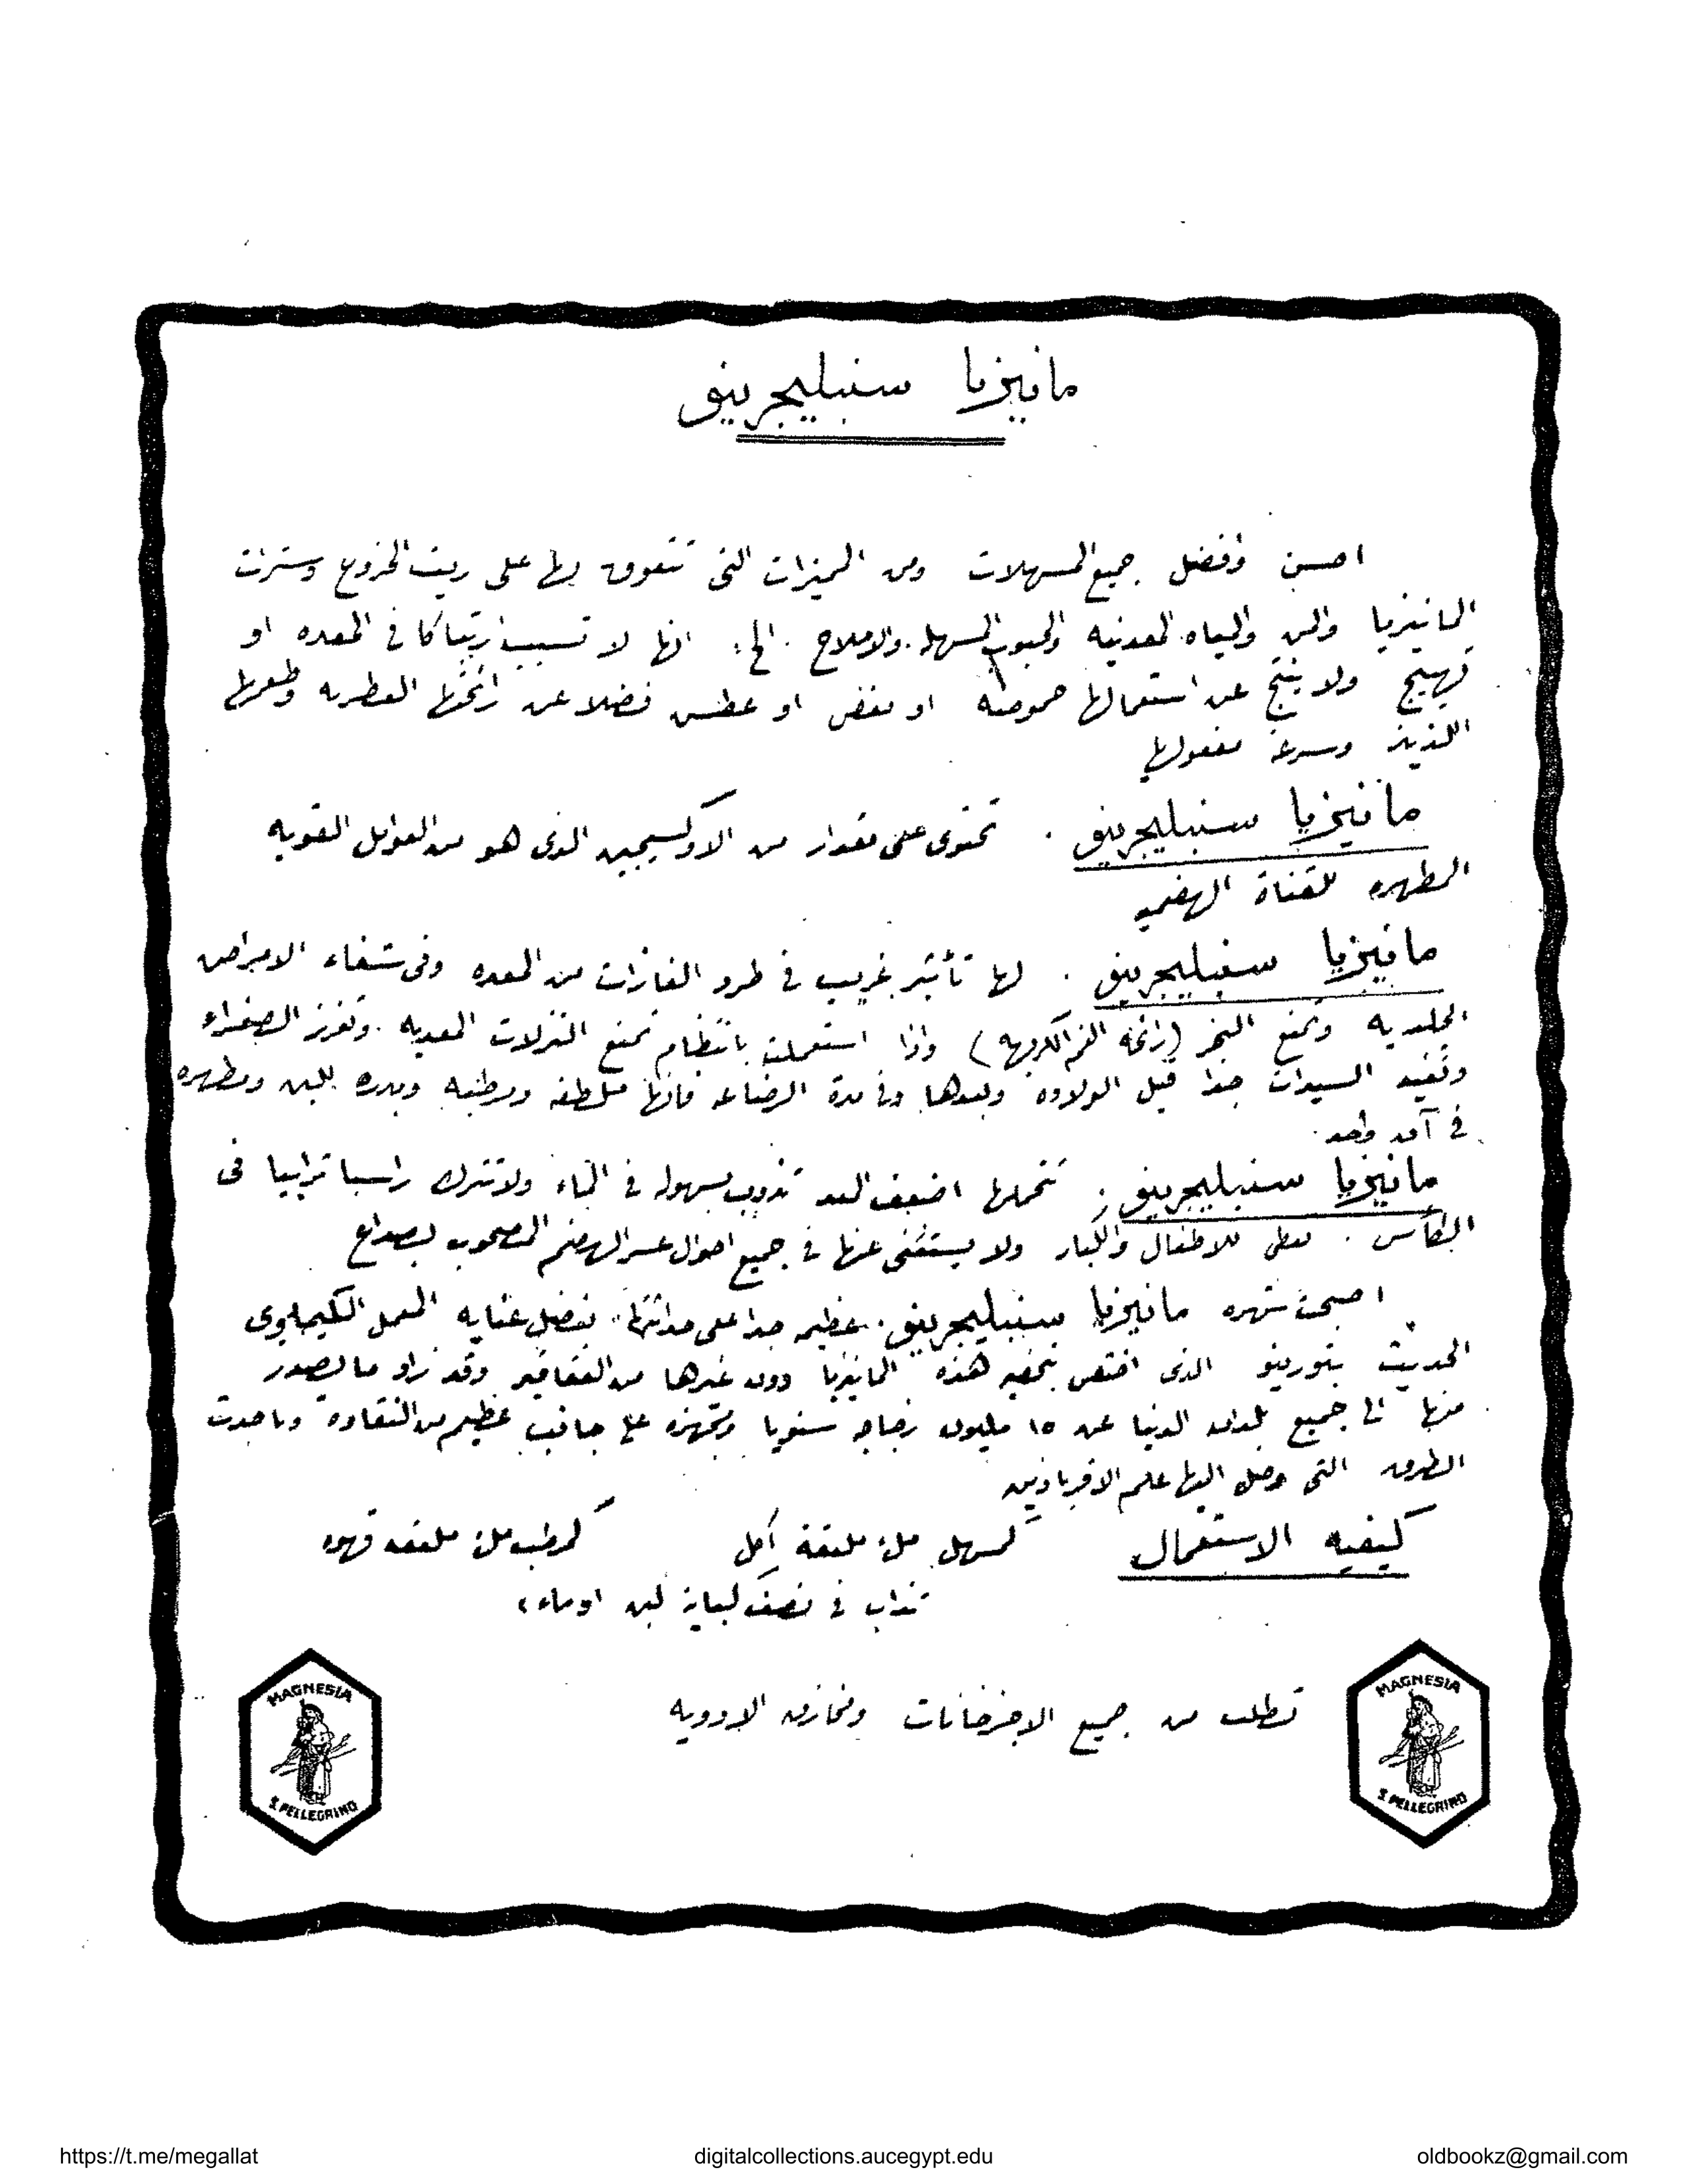 مانيزيا سنبليجرينو
احسن وافضل جميع المسهلات ومن المميزات التى تتفوق بها على زيت الخروع وسترات
المانيزيا والمن والمياه المعدنيه والحبوب المسهله والاملاح .الخ: انها لا تسبب ارتباكا فى المعده او
تهييج ولا ينتج عن استعمالها حموضه او مغص او عطس فضلا عن رائحتها العطريه وطعمها
اللذيذ وسرعة مفعولها
مانيزيا سنبليجرينو . تحتوى على مقدار من الاوكسيجين الذى هو من العوامل القويه
المطهره للقناة الهضميه
مانيزيا سنبليجرينو . لها تأثير غريب فى طرد الغازات من المعده وفى شفاء الامراض
الجلديه وتمنع البخر (رائحة الفم الكريهه) واذا استعملت بانتظام تمنع النزلات المعديه . وتفرز الصفراء
وتفيد السيدات جدا قبل الولاده وبعدها وفى مدة الرضاعه فانها ملطفه ومرطبه ومدره للبن ومطهره
فى آن واحد.
مانيزيا سنبليجرينو : تتحملها اضعف المعد تذوب بسهوله فى الماء ولا تترك راسبا ترابيا فى
الكأس . تعطى للاطفال والكبار ولا يستغنى عنها فى جميع احوال عسر الهضم المصحوب بصداع
اصبحت شهره مانيزيا سنبليجرينو. عظيمه جدا على حداثتها بفضل عنايه المعمل الكيماوى
الحديث بتورينو الذى اختص بتحضير هذه المانيزيا دون غيرها من العقاقير وقد زاد ما يصدر
منها الى جميع بلدان الدنيا عن ١٥ مليون زجاجه سنويا وتجهزه على جانب عظيم من النقاوة وباحدث
الطرق التى وصل اليها علم الاقرباذين
كيفيه الاستعمال كمسهل ملء ملعقة أكل كمرطب ملء ملعقه قهوه
تذاب فى نصف كباية لبن او ماء
تطلب من جميع الاجزخانات ومخازن الادويه
MAGNESIA
S. PELLEGRINO
MAGNESIA
S. PELLEGRINO
https://t.me/megallat digitalcollections.aucegypt.edu oldbookz@gmail.com